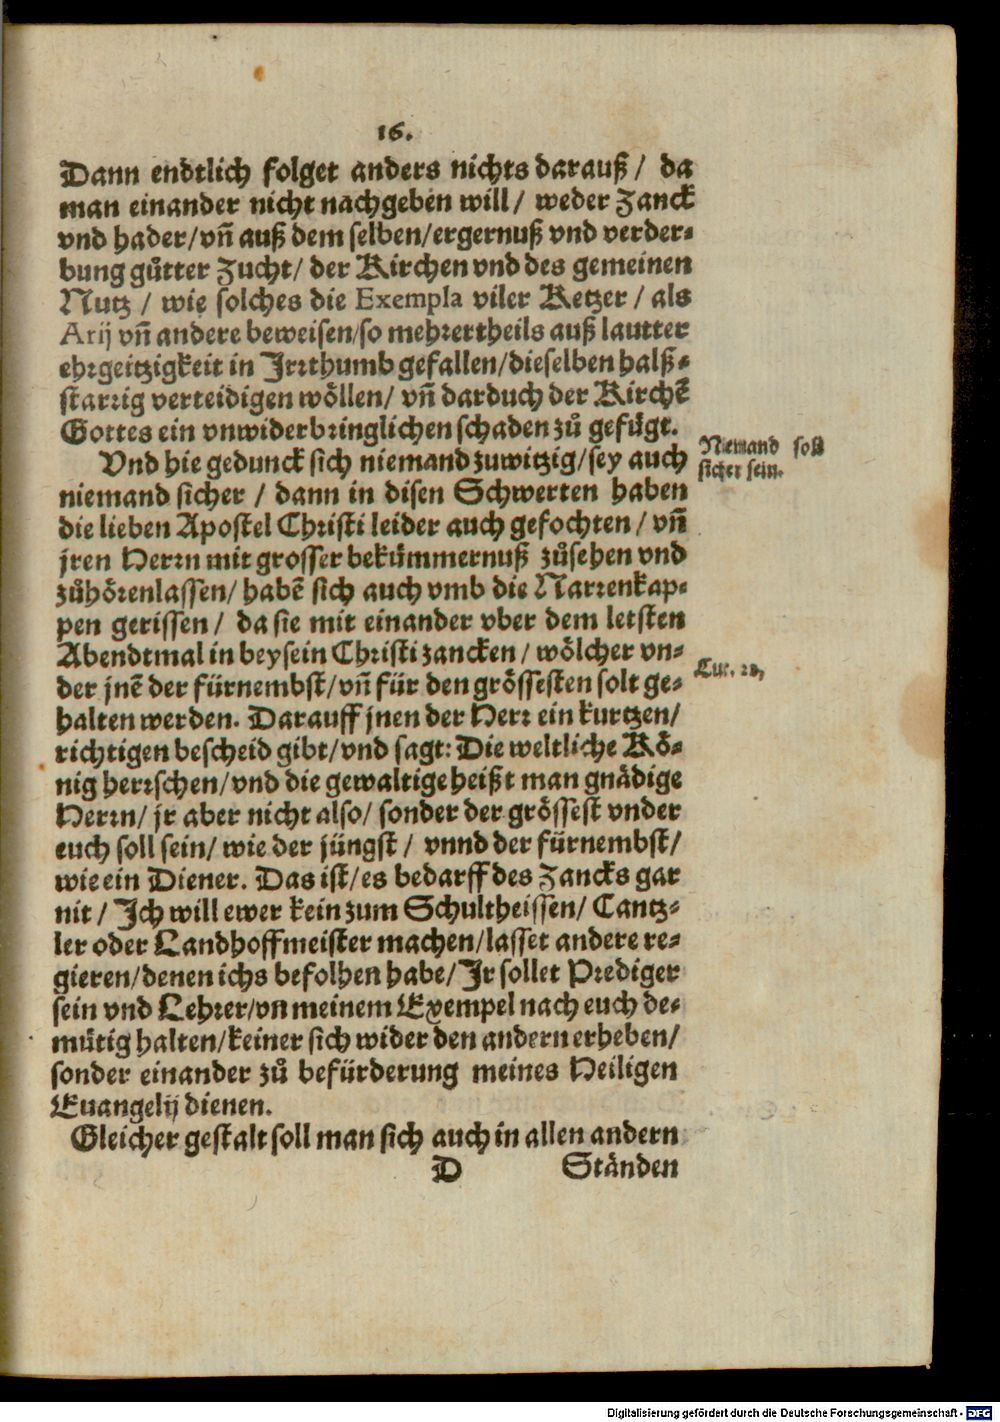 16.
Dann endtlich folget anders nichts darauß / da
man einander nicht nachgeben will / weder Zanck
vnd hader / vñ auß dem selben / ergernuß vnd verder⸗
bung gůtter Zucht / der Kirchen vnd des gemeinen
Nutz / wie solches die Exempla viler Ketzer / als
Arij vñ andere beweisen / so mehrertheils auß lautter
ehrgeitzigkeit in Irrthumb gefallen / dieselben halß⸗
starrig verteidigen wöllen / vñ darduch der Kirchẽ
Gottes ein vnwiderbringlichen schaden zů gefůgt.
Vnd hie gedunck sich niemand zuwitzig / sey auch
Niemand soll
sicher sein.
niemand sicher / dann in disen Schwerten haben
die lieben Apostel Christi leider auch gefochten / vñ
jren Herrn mit grosser bekümmernuß zůsehen vnd
zůhörenlassen / habẽ sich auch vmb die Narrenkap⸗
pen gerissen / da sie mit einander vber dem letsten
Abendtmal in beysein Christi zancken / wölcher vn⸗
Luc. 22,
der jnẽ der fürnembst / vñ für den grössesten solt ge⸗
halten werden. Darauff jnen der Herr ein kurtzen /
richtigen bescheid gibt / vnd sagt: Die weltliche Kö⸗
nig herrschen / vnd die gewaltige heißt man gnädige
Herrn / jr aber nicht also / sonder der grössest vnder
euch soll sein / wie der jüngst / vnnd der fürnembst /
wie ein Diener. Das ist / es bedarff des Zancks gar
nit / Ich will ewer kein zum Schultheissen / Cantz⸗
ler oder Landhoffmeister machen / lasset andere re⸗
gieren / denen ichs befolhen habe / Ir sollet Prediger
sein vnd Lehrer / vn meinem Exempel nach euch de⸗
můtig halten / keiner sich wider den andern erheben /
sonder einander zů befürderung meines Heiligen
Euangelij dienen.
Gleicher gestalt soll man sich auch in allen andern
D Ständen
Digitalisierung gefördert durch die Deutsche Forschungsgemeinschaft - DFG